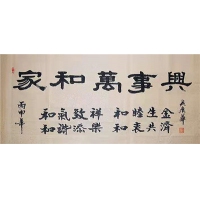 家和萬事興
和氣致祥
和諧添樂
和睦生金
和衷共濟
丙申年